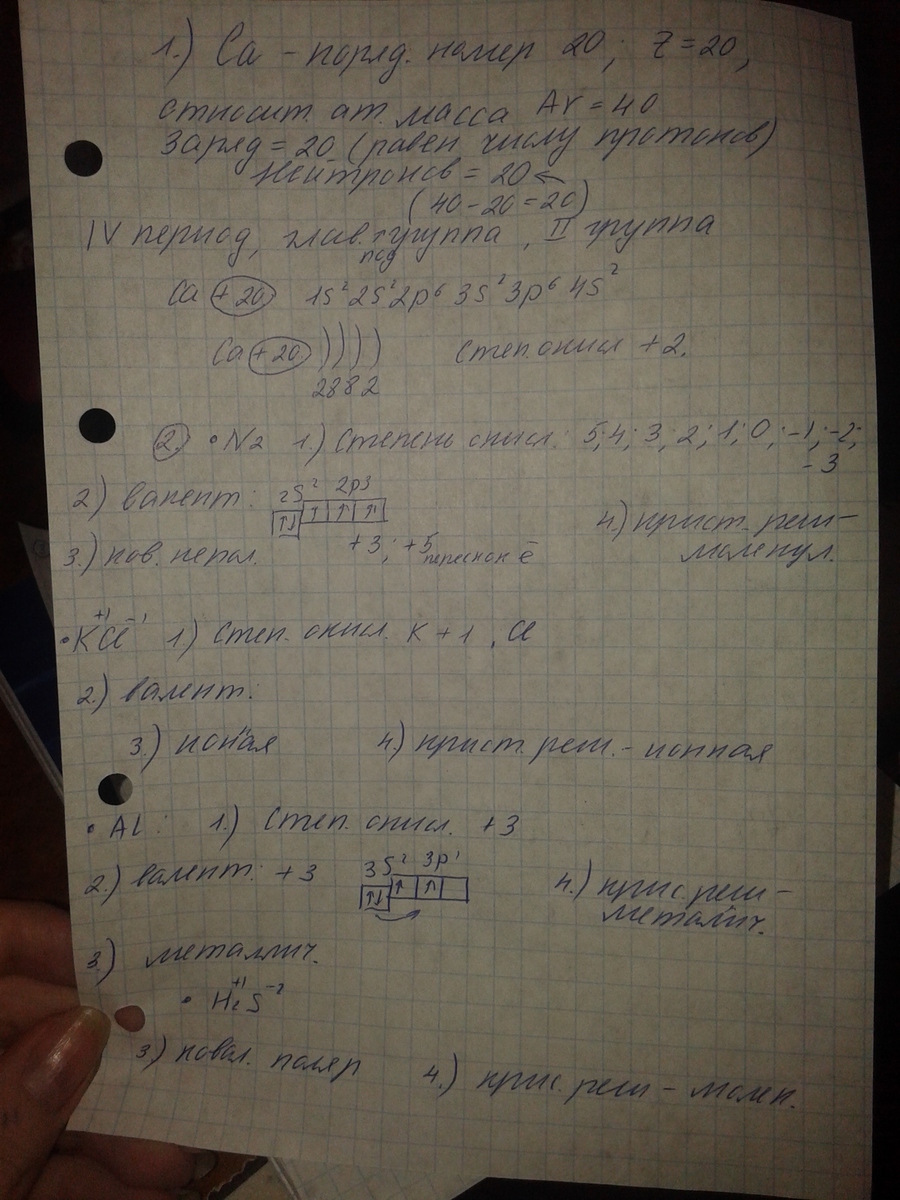 1.) Ca – поряд. номер 20; Z = 20,
относит. ат. масса Ar = 40
Заряд = 20 (равен числу протонов)
Нейтронов = 20 ←
(40 - 20 = 20)
IV период, глав. группа, II группа
под
Ca +20 1s² 2s² 2p⁶ 3s² 3p⁶ 4s²
Ca +20 ) ) ) ) степ. окисл +2.
2 8 8 2
2. • N2 1.) Степень окисл: 5; 4; 3; 2; 1; 0; -1; -2;
-3
2) валент: 2S² 2p3
↑↓ ↑ ↑ ↑
+3; +5
перескок ē
4.) крист. реш –
молекул.
3.) ков. непол.
• K⁺¹Cl⁻¹ 1) Степ. окисл. K + 1, Cl
2.) валент:
3.) ионая 4.) крист. реш. – ионная
• Al: 1.) Степ. окисл. +3
2.) валент: +3 3S² 3p¹
↑↓ ↑ ↑
4.) крис. реш –
металич.
3.) металлич.
• H₂⁺¹S⁻²
3.) ковал. поляр 4.) крис. реш – молек.